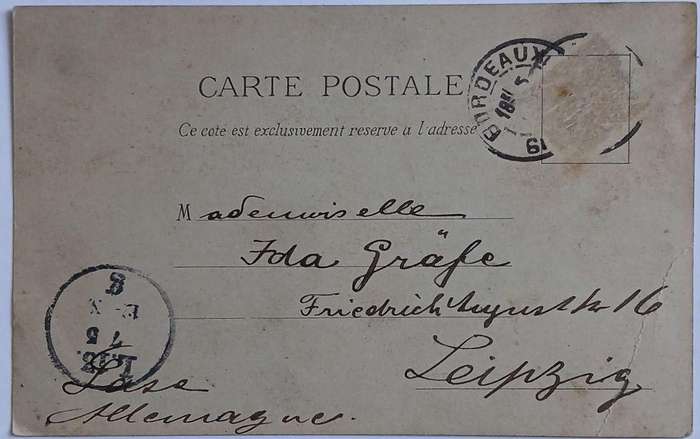 CARTE POSTALE
Ce coté est exclusivement reserve a l'adresse
BORDEAUX
Mademoiselle
Ida Gräfe
Friedrich Auguststr 16
Leipzig
Saxe
Allemagne.